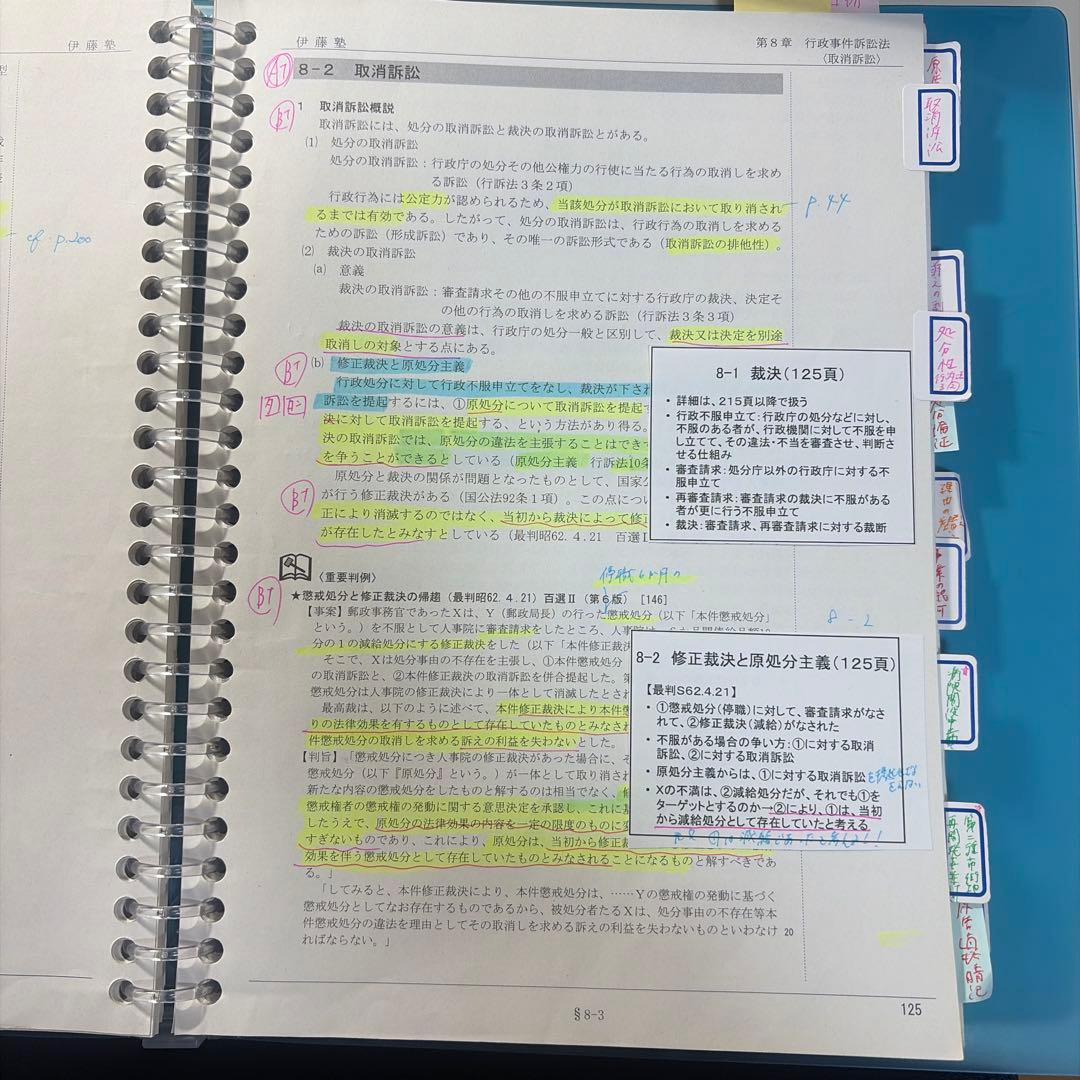 伊藤塾
cf. p.200
伊藤塾
第8章 行政事件訴訟法
〈取消訴訟〉
A↑
8-2 取消訴訟
B↑
1 取消訴訟概説
取消訴訟には、処分の取消訴訟と裁決の取消訴訟とがある。
(1) 処分の取消訴訟
処分の取消訴訟:行政庁の処分その他公権力の行使に当たる行為の取消しを求め
る訴訟(行訴法3条2項)
行政行為には公定力が認められるため、当該処分が取消訴訟において取り消され
p.44
るまでは有効である。したがって、処分の取消訴訟は、行政行為の取消しを求める
ための訴訟(形成訴訟)であり、その唯一の訴訟形式である(取消訴訟の排他性)。
(2) 裁決の取消訴訟
(a) 意義
裁決の取消訴訟:審査請求その他の不服申立てに対する行政庁の裁決、決定そ
の他の行為の取消しを求める訴訟(行訴法3条3項)
裁決の取消訴訟の意義は、行政庁の処分一般と区別して、裁決又は決定を別途
取消しの対象とする点にある。
B↑
(b) 修正裁決と原処分主義
行政処分に対して行政不服申立てをなし、裁決が下され
訴訟を提起するには、①原処分について取消訴訟を提起す
決に対して取消訴訟を提起する、という方法があり得る。
決の取消訴訟では、原処分の違法を主張することはでき
を争うことができるとしている(原処分主義 行訴法10条
原処分と裁決の関係が問題となったものとして、国家公
B↑
が行う修正裁決がある(国公法92条1項)。この点につい
正により消滅するのではなく、当初から裁決によって修正
が存在したとみなすとしている(最判昭62.4.21 百選Ⅱ
8-1 裁決(125頁)
・詳細は、215頁以降で扱う
・行政不服申立て:行政庁の処分などに対し、
不服のある者が、行政機関に対して不服を申
し立てて、その違法・不当を審査させ、判断さ
せる仕組み
・審査請求:処分庁以外の行政庁に対する不
服申立て
・再審査請求:審査請求の裁決に不服がある
者が更に行う不服申立て
・裁決:審査請求、再審査請求に対する裁断
〈重要判例〉
停職6か月の
B↑
★懲戒処分と修正裁決の帰趨(最判昭62.4.21)百選Ⅱ(第6版)[146]
【事案】郵政事務官であったXは、Y(郵政局長)の行った懲戒処分(以下「本件懲戒処分」
8-2
という。)を不服として人事院に審査請求をしたところ、人事院は、6か月間俸給月額10
分の1の減給処分にする修正裁決をした(以下「本件修正裁決
そこで、Xは処分事由の不存在を主張し、①本件懲戒処分
の取消訴訟と、②本件修正裁決の取消訴訟を併合提起した。第
懲戒処分は人事院の修正裁決により一体として消滅したとされ
最高裁は、以下のように述べて、本件修正裁決により本件懲
りの法律効果を有するものとして存在していたものとみなされ
件懲戒処分の取消しを求める訴えの利益を失わないとした。
【判旨】「懲戒処分につき人事院の修正裁決があった場合に、そ
懲戒処分(以下『原処分』という。)が一体として取り消され
新たな内容の懲戒処分をしたものと解するのは相当でなく、修
懲戒権者の懲戒権の発動に関する意思決定を承認し、これに基
したうえで、原処分の法律効果の内容を一定の限度のものに変
すぎないものであり、これにより、原処分は、当初から修正裁
効果を伴う懲戒処分として存在していたものとみなされることになるものと解すべきであ
る。」
8-2 修正裁決と原処分主義(125頁)
【最判S62.4.21】
・①懲戒処分(停職)に対して、審査請求がなさ
れて、②修正裁決(減給)がなされた
・不服がある場合の争い方:①に対する取消
訴訟、②に対する取消訴訟
・原処分主義からは、①に対する取消訴訟
・Xの不満は、②減給処分だが、それでも①を
ターゲットとするのか→②により、①は、当初
から減給処分として存在していたと考える
「してみると、本件修正裁決により、本件懲戒処分は、……Yの懲戒権の発動に基づく
懲戒処分としてなお存在するものであるから、被処分者たるXは、処分事由の不存在等本
件懲戒処分の違法を理由としてその取消しを求める訴えの利益を失わないものといわなけ
20
ればならない。」
§8-3
125
取消訴訟
処分性
理由の
事業の認可
第二種市街地
再開発事業